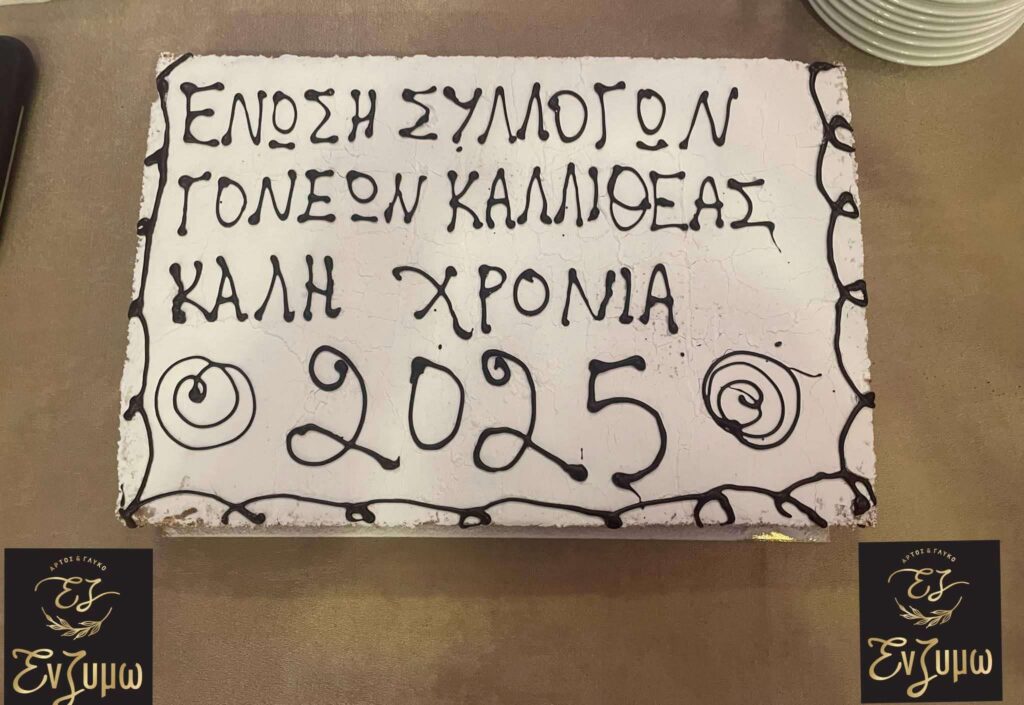 ΕΝΩΣΗ ΣΥΛΛΟΓΩΝ
ΓΟΝΕΩΝ ΚΑΛΛΙΘΕΑΣ
ΚΑΛΗ ΧΡΟΝΙΑ
2025
ΑΡΤΟΣ & ΓΛΥΚΟ
ΕΖ
Ενζυμω
ΑΡΤΟΣ & ΓΛΥΚΟ
ΕΖ
Ενζυμω